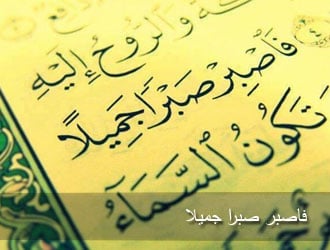 وَالرُّوحُ إِلَيْهِ
فَاصْبِرْ صَبْرًا جَمِيلًا
تَكُونُ السَّمَآءُ
فاصبر صبرا جميلا